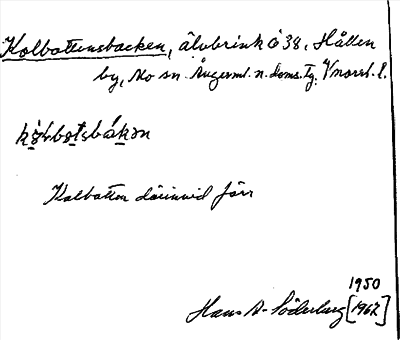 Kolbottensbacken, älvbrink ö 38, Hållen
by, Mo sn. Ångerml. n. doms. Tg. Vnorrl. l.
kɔ̀lbɔtsbákən
Kolbotten därinvid förr
1950
Hans A- Söderberg [1967]